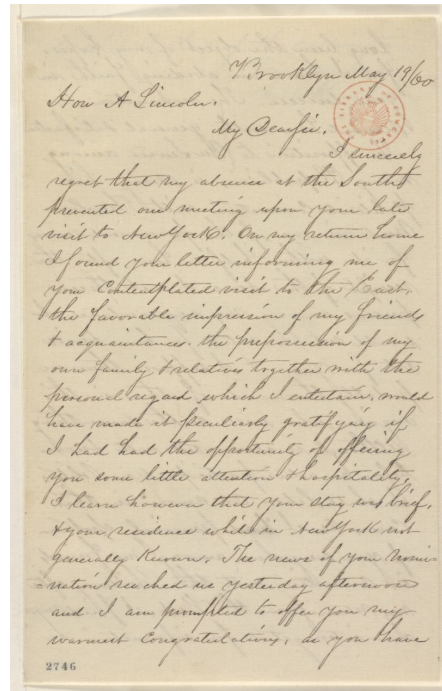 Brooklyn May 19/60
Hon A Lincoln.
My Dear Sir.
I sincerely
regret that my absence at the South
prevented our meeting upon your late
visit to New York. On my return home
I found your letter informing me of
your contemplated visit to the East.
the favorable impression of my friends
& acquaintances. the prepossession of my
own family & relatives together with the
personal regard which I entertain, would
have made it peculiarly gratifying if
I had had the opportunity of offering
you some little attention & hospitality,
I learn however that your stay was brief,
& your residence while in New York not
generally known. The news of your nomi-
=nation reached us yesterday afternoon
and I am prompted to offer you my
warmest Congratulations, as you have
2746